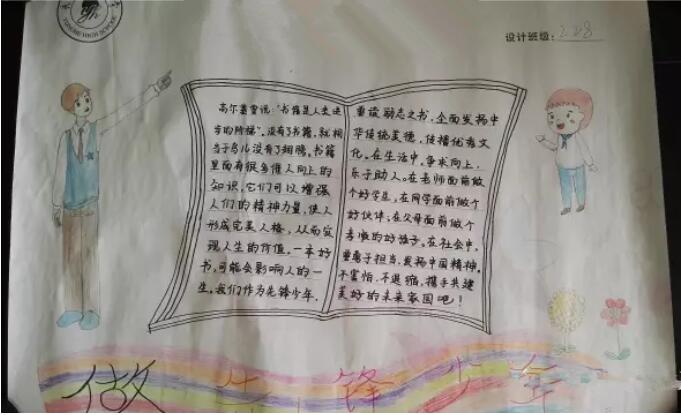 YUNHE HIGH SCHOOL
设计班级: 228
高尔基曾说:“书籍是人类进
步的阶梯”。没有了书籍,就相
当于鸟儿没有了翅膀。书籍
里面有很多催人向上的
知识,它们可以增强
人们的精神力量,使人
形成完美人格,从而实
现人生的价值。一本好
书,可能会影响人的一
生。我们作为先锋少年.
重读励志之书,全面发扬中
华传统美德,传播优秀文
化。在生活中,争求向上,
乐于助人。在老师面前做
个好学生,在同学面前做个
好伙伴;在父母面前做个
孝顺的好孩子。在社会中,
重鹰于担当,发扬中国精神。
不害怕、不退缩,携手共建
美好的未来家园吧!
做先锋少年